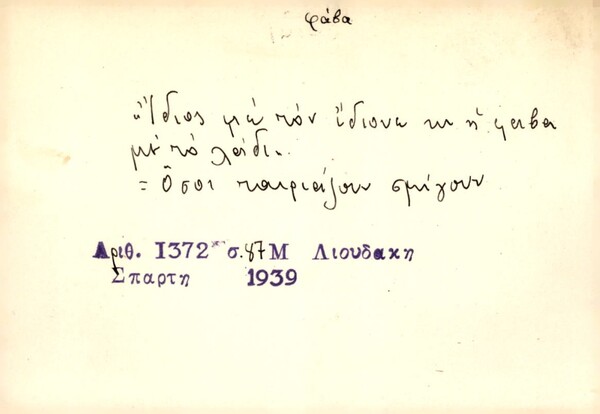 φάβα
Ἴδιος μὲ τὸν ἴδιονα κι ἡ φάβα
μὲ τὸ λάδι.
= Ὅσοι ταιριάζουν σμίγουν
Αριθ. 1372 σ. 87 Μ Λιουδακη
Σπαρτη 1939